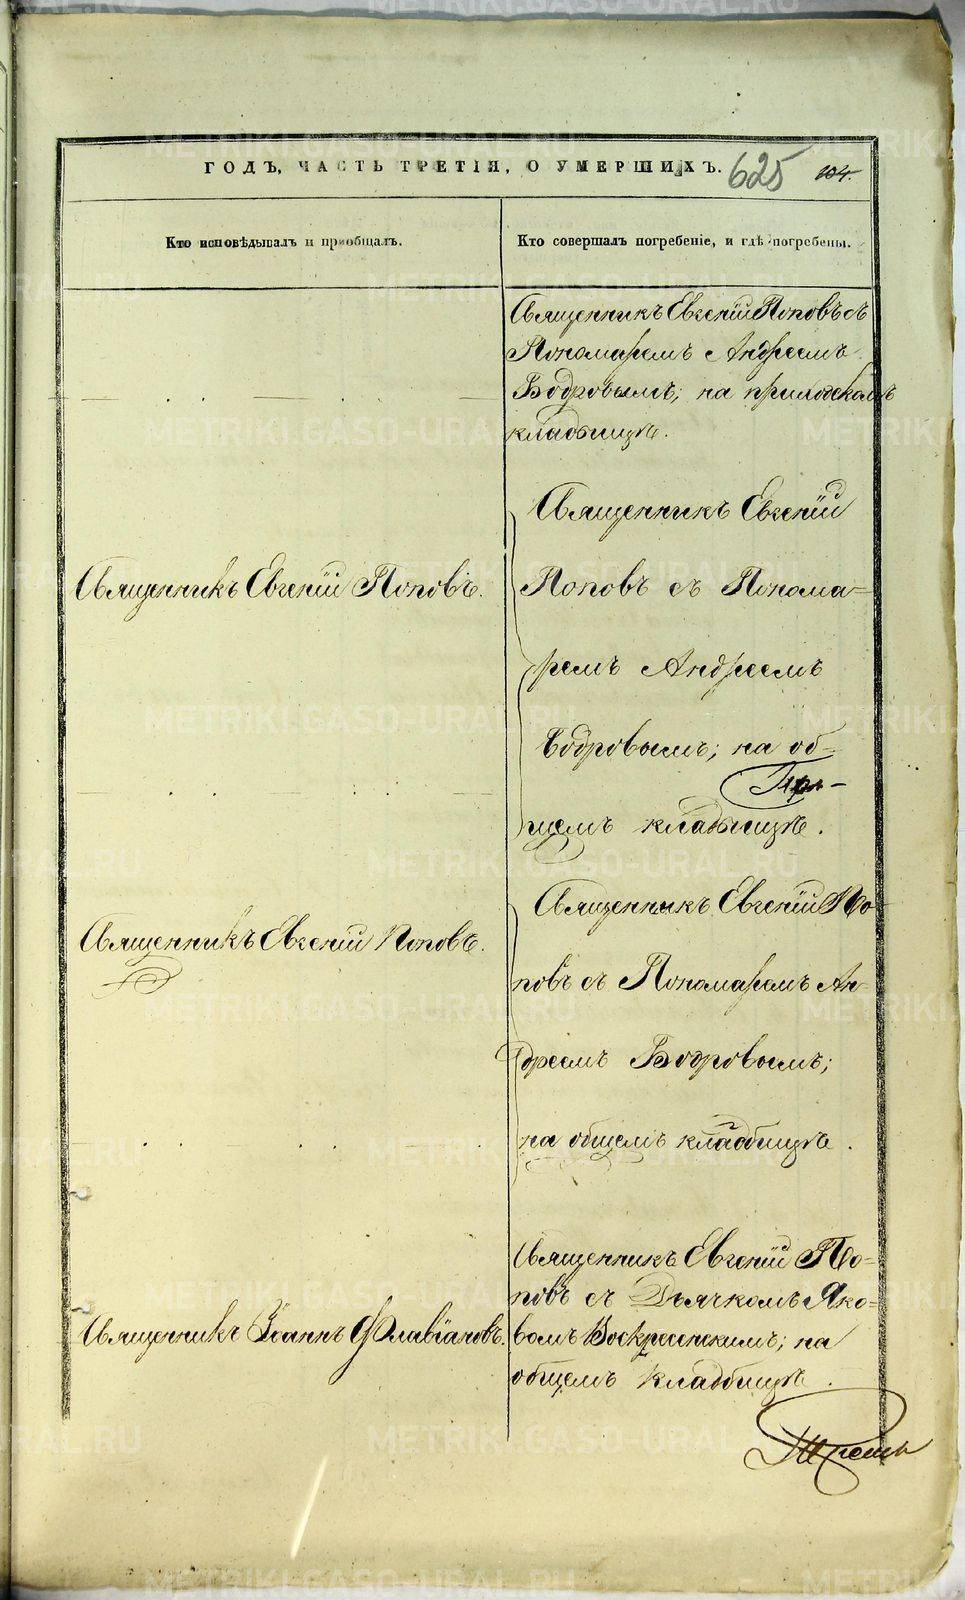 ГОДЪ, ЧАСТЬ ТРЕТІЯ, О УМЕРШИХЪ.
625
104.
Кто исповѣдывалъ и пріобщалъ.
Кто совершалъ погребеніе, и гдѣ погребены.
Священникъ Евгеній Поповъ съ
Пономаремъ Андреемъ
Бодровымъ; на приходскомъ
кладбищѣ.
Священникъ Евгеній Поповъ.
Священникъ Евгеній
Поповъ съ Понома=
ремъ Андреемъ
Бодровымъ; на об-
щемъ кладбищѣ.
Священникъ Евгеній Поповъ.
Священникъ Евгеній По-
повъ съ Пономаремъ Ан-
дреемъ Бодровымъ;
на общемъ кладбищѣ.
Священникъ Іоаннъ Флавіановъ.
Священникъ Евгеній По=
повъ съ Дьячкомъ Яко-
вомъ Воскресенскимъ; на
общемъ кладбищѣ.
METRIKI.GASO-URAL.RU